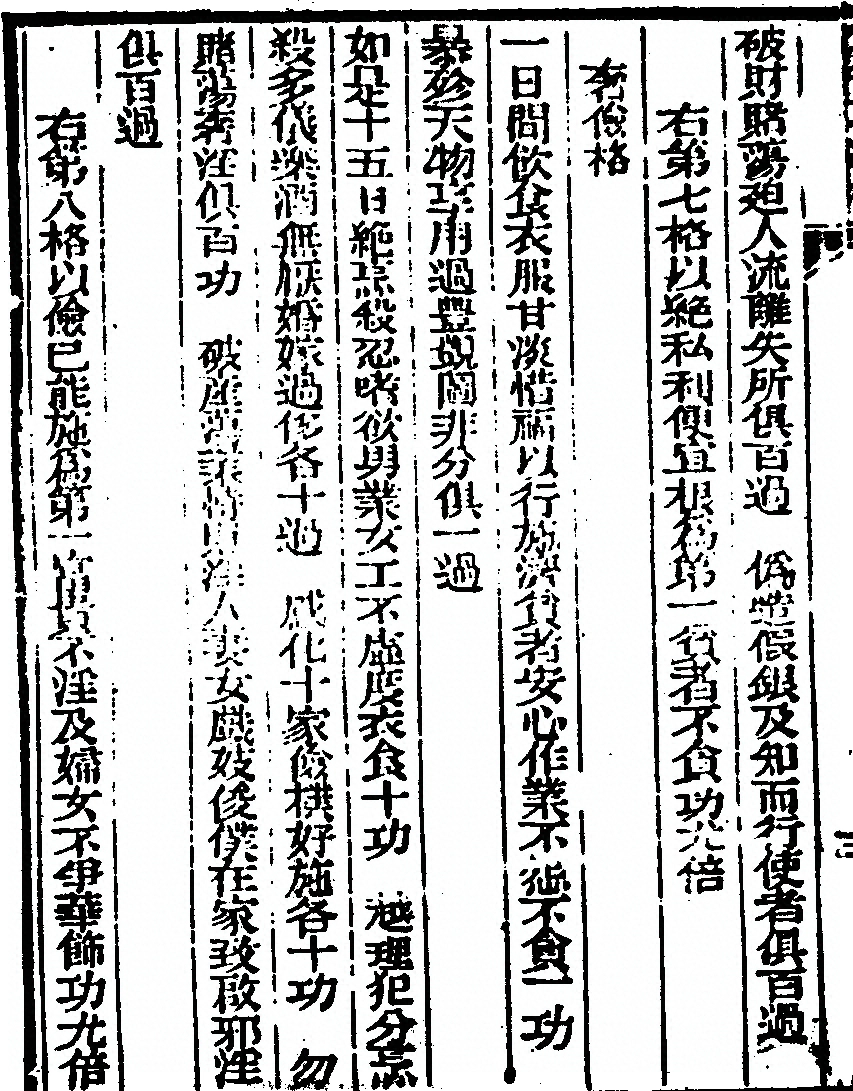 破財賭蕩廹人流離失所俱百過　偽造假銀及知而行使者俱百過
右第七格以絶私利便宜根為第一貧者不貪功尤倍
奢儉格
一日間飲食衣服甘淡惜福以行施濟貧者安心作業不怨不貪一功
暴殄天物享用過豐覬圖非分俱一過
如是十五日絶忌殺忍嗜欲男業女工不虛度衣食十功　越理犯分忘
殺多儀樂酒無厭婚嫁過侈各十過　感化十家儉樸好施各十功　勿
賭蕩奢淫俱百功　破產蕩業淫人妻女戲妓俊僕在家致啟邪淫
俱百過
右第八格以儉已能施為第一富貴不淫及婦女不爭華飾功尤倍